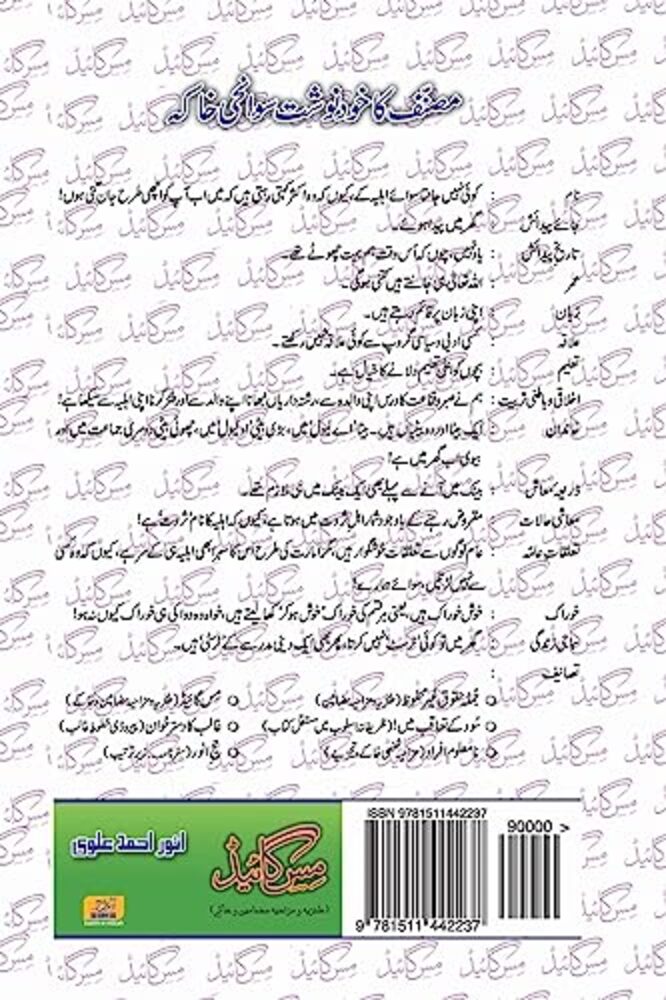 مصنّف کا خود نوشت سوانحی خاکہ
نام : کوئی نہیں جانتا سوائے اہلیہ کے، کیوں کہ وہ اکثر کہتی رہتی ہیں کہ میں اب آپ کو اچھی طرح جان گئی ہوں!
جائے پیدائش : گھر میں پیدا ہوئے۔
تاریخ پیدائش : یاد نہیں، چوں کہ اُس وقت ہم بہت چھوٹے تھے۔
عمر : اللہ تعالیٰ ہی جانتے ہیں کتنی ہوگی۔
زبان : اپنی زبان پر قائم رہتے ہیں۔
علاقہ : کسی ادبی و سیاسی گروپ سے کوئی علاقہ نہیں رکھتے۔
تعلیم : بچوں کو اعلیٰ تعلیم دلانے کا خیال ہے۔
اخلاقی و باطنی تربیت : ہم نے صبر و قناعت کا درس اپنی والدہ سے، رشتہ داریاں نبھانا اپنے والد سے اور شکر کرنا اپنی اہلیہ سے سیکھا ہے!
خاندان : ایک بیٹا اور دو بیٹیاں ہیں۔ بیٹا 'اے لیول' میں، بڑی بیٹی 'او لیول' میں، چھوٹی بیٹی دوسری جماعت میں اور
بیوی اب گھر میں ہے!
ذریعہ معاش : بینک میں آنے سے پہلے بھی ایک بینک میں ہی ملازم تھے۔
معاشی حالات : مقروض رہنے کے باوجود شمار اہلِ ثروت میں ہوتا ہے، کیوں کہ اہلیہ کا نام 'ثروت' ہے!
تعلقاتِ عامہ : عام لوگوں سے تعلقات خوشگوار ہیں، مگر امارت کی طرح اس کا سہرا بھی اہلیہ ہی کے سر ہے، کیوں کہ وہ کسی
سے نہیں لڑتیں، سوائے ہمارے!
خوراک : خوش خوراک ہیں، یعنی ہر قسم کی خوراک 'خوش ہو کر' کھا لیتے ہیں، خواہ وہ دوا کی ہی خوراک کیوں نہ ہو!
سماجی زندگی : گھر میں تو کوئی 'ٹرسٹ' نہیں کرتا، پھر بھی ایک دینی مدرسے کے ٹرسٹی ہیں۔
تصانیف :
جُملہ حقوق غیر محفوظ (طنزیہ و مزاحیہ مضامین) مِس گائیڈ (طنزیہ و مزاحیہ مضامین و خاکے)
سُود کے تعاقب میں! (ظریفانہ اسلوب میں مستقل کتاب) غالب کا دسترخوان (پیروڈی خطوطِ غالب)
نامعلوم افراد (مزاحیہ شخصی خاکے و تجزیے) حج انور (سفرنامہ۔ زیرِ ترتیب)
ISBN 9781511442237
90000 >
انور احمد علوی
مِس گائیڈ
(طنزیہ و مزاحیہ مضامین و خاکے)
9 781511 442237